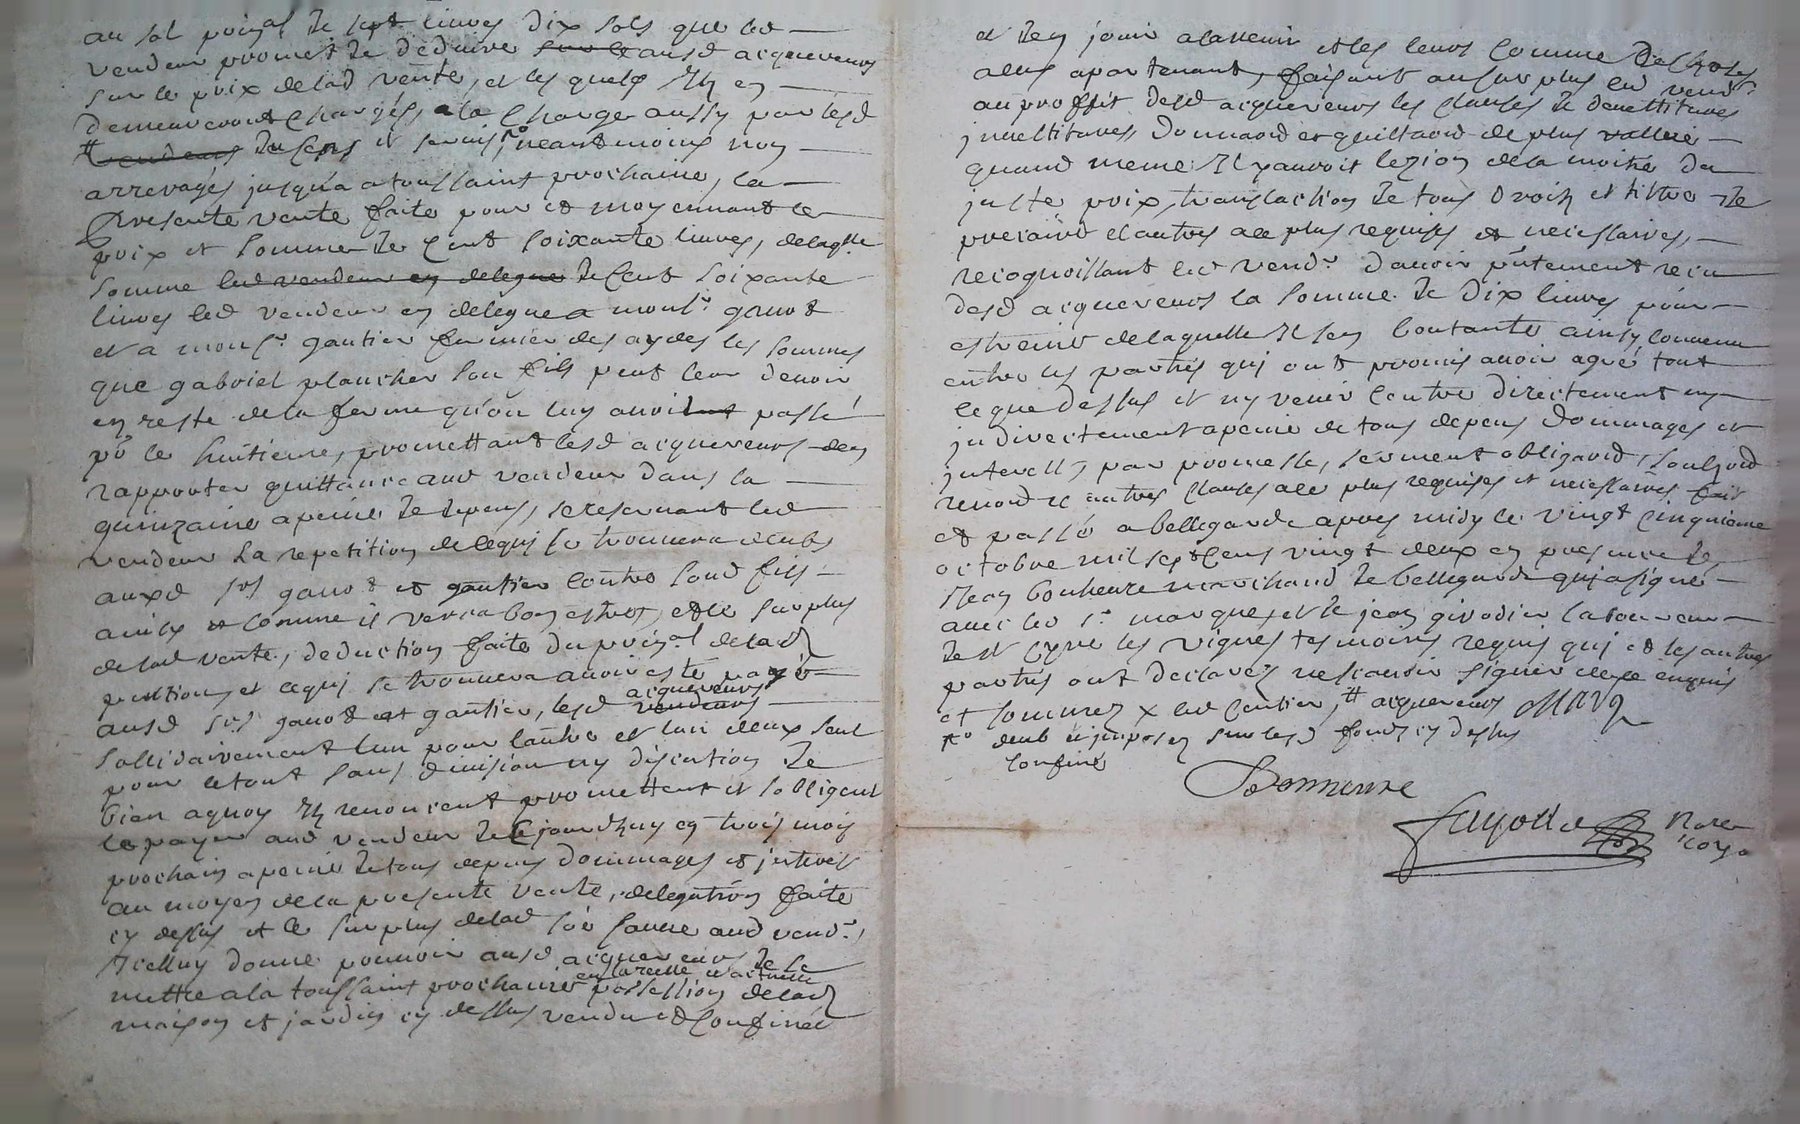 au sol prinal de sept livres dix sols que led
vendeur promet de deduire sur le ausd acquereurs
sur le prix delad vente, et les quels Ilz en
demeureront chargés, a la charge aussy par lesd
# vendeurs du cens et servis, ro neantmoins non
arreragés jusqua a toussaint prochaine, la
Presente vente faite pour et moyennant le
prix et somme de Cent soixante livres, delaqlle
somme led vendeur en delegue de Cent soixante
livres led vendeur en delegue a monsr ganot
et a monsr gautier fermier des aydes les sommes
que gabriel plancher son fils peut leur devoir
en reste de la ferme qu'on luy avoit passé
pr le huitieme, promettant lesd acquereurs den
rapporter quittance aud vendeur dans la
quinzaine a peine de depens, se reservant led
vendeur La repetition de ce qui se trouvera
auxd srs ganot et gautier contre sond fils
ainsy et comme il verra bon estre, et le surplus
delad vente, deduction faite du prinal delad
pention, et ce qui se trouvera avoir esté payé
ausd srs ganot et gautier, lesd vendeurs acquereurs
sollidairement lun pour lautre et lun deux seul
pour le tout sans division ny discution de
bien a quoy Ilz renoncent promettent et sobligent
le payer aud vendeur de ce jourdhuy en trois mois
prochain a peine de tous depens dommages et jnterest
au moyen de la presente vente, delegation faite
cy dessus et le surplus delad soe sauve aud vendr,
Icelluy donne pouvoir ausd acquereurs de se
mettre a la toussaint prochaine en la reelle et actuelle possession delad
maison et jardin cy dessus vendu et Confinéé
et den jouir a lavenir et les leurs comme de choses
a eux apartenant, faisant au surplus led vendr
au proffit desd acquereurs les clauses de devettitures
jnvettitures, donnaõn et quittaõn de plus vallue
quand meme Il y auroit lezion de la moitié du
juste prix, translaction de tous droitz et tittre de
precaire et autres a ce plus requises et necessaires,
recognoissant led vendr davoir pntement recu
desd acquereurs la somme de dix livres pour
estreine de laquelle Il sen contante ainsy convenu
entre les parties qui ont promis avoir agréé tout
ce que dessus et ny venir contre directement ny
jndirectement a peine de tous depens dommages et
jnterests, par promesse, serment obligaõn, soubzõn
renonõn et autres clauses a ce plus requises et necessaires fait
et passé a bellegarde apres midy le vingt cinquieme
octobre mil sept cens vingt deux en presence de
Sr Jean bonheure marchand de bellegarde qui a signé
avec led sr marque, et de jean girodier laboureur
de st Cyre les vignes tesmoins requis qui et les autres
parties ont declarez ne scavoir signer de ce enquis
et sommez x led gautier, # acquereurs Marq
ro deub et jmposez sur lesd fonds cy dessus
confiné
Bonneure
fayolle Notre
royal